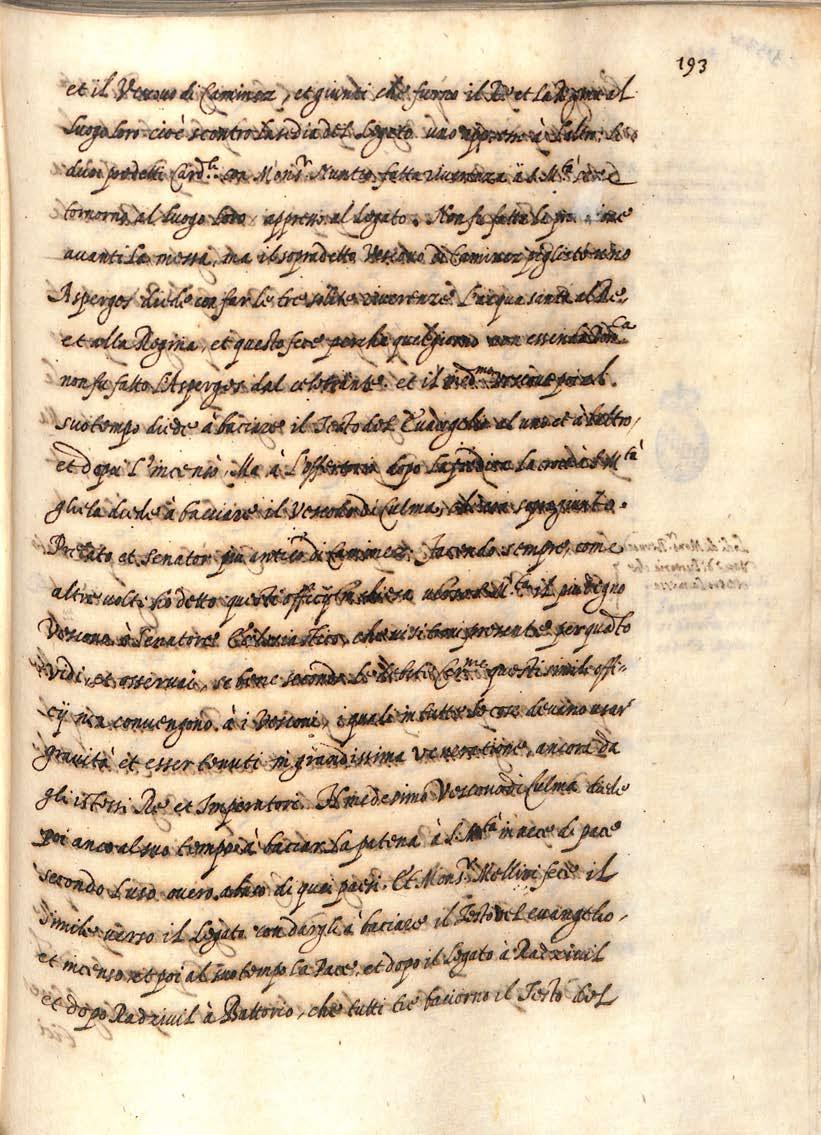 193
et il Vescovo di Caminez, et giunti che furno il Re et la Regina al
luogo loro cioè scontro la sedia del Legato uno appresso à l'altro, li
duoi predetti Card.li con Mons.r Nuntio fatta riverenza à S. M.tà
tornorno al luogo loro appresso al Legato. Non fu fatta
avanti la messa, ma il sopradetto Vescovo di Caminez pigliato uno
Asperges diede con far le tre solite riverenze l'acqua santa al Re,
et alla Regina, et questo fece perche quel giorno non essendo
non fu fatto l'Asperges dal celebrante. et il med.mo Vescovo poi al
suo tempo diede à baciare il Testo del Evangelio al uno et à l'altro,
et dopò l'incensò, Ma à l'offertorio dopo la predica la croce à S. M.tà
gliela diede à baciare il Vescovo di Culma, che era sopragiunto
Prelato et Senator più antico di Caminez, facendo sempre, come
altre volte ho detto questi officij in chiesa verso S. M.tà il più degno
Vescovo ò Senatore Ecclesiastico, che vi si trovi presente per quanto
vidi, et osservai, se bene secondo le debite Cer.me questi simile offi-
cij non convengono à i Vescovi, i quali in tutte le cose devono usar
gravità et esser tenuti in grandissima veneratione, ancora da
gli istessi Re et Imperatori. Il medesimo Vescovo di Culma diede
poi anco al suo tempo à baciar la patena à S. M.tà in vece di pace
secondo l'uso overo abuso di quei paesi. Et Mons.r Mellini fece il
simile verso il Legato con dargli à baciare il Testo del evangelio,
et incenso et poi al suo tempo la Pace, et dopo il Legato à Radzivil
et dopo Radzivil à Battorio, che tutti tre baciorno il Testo del